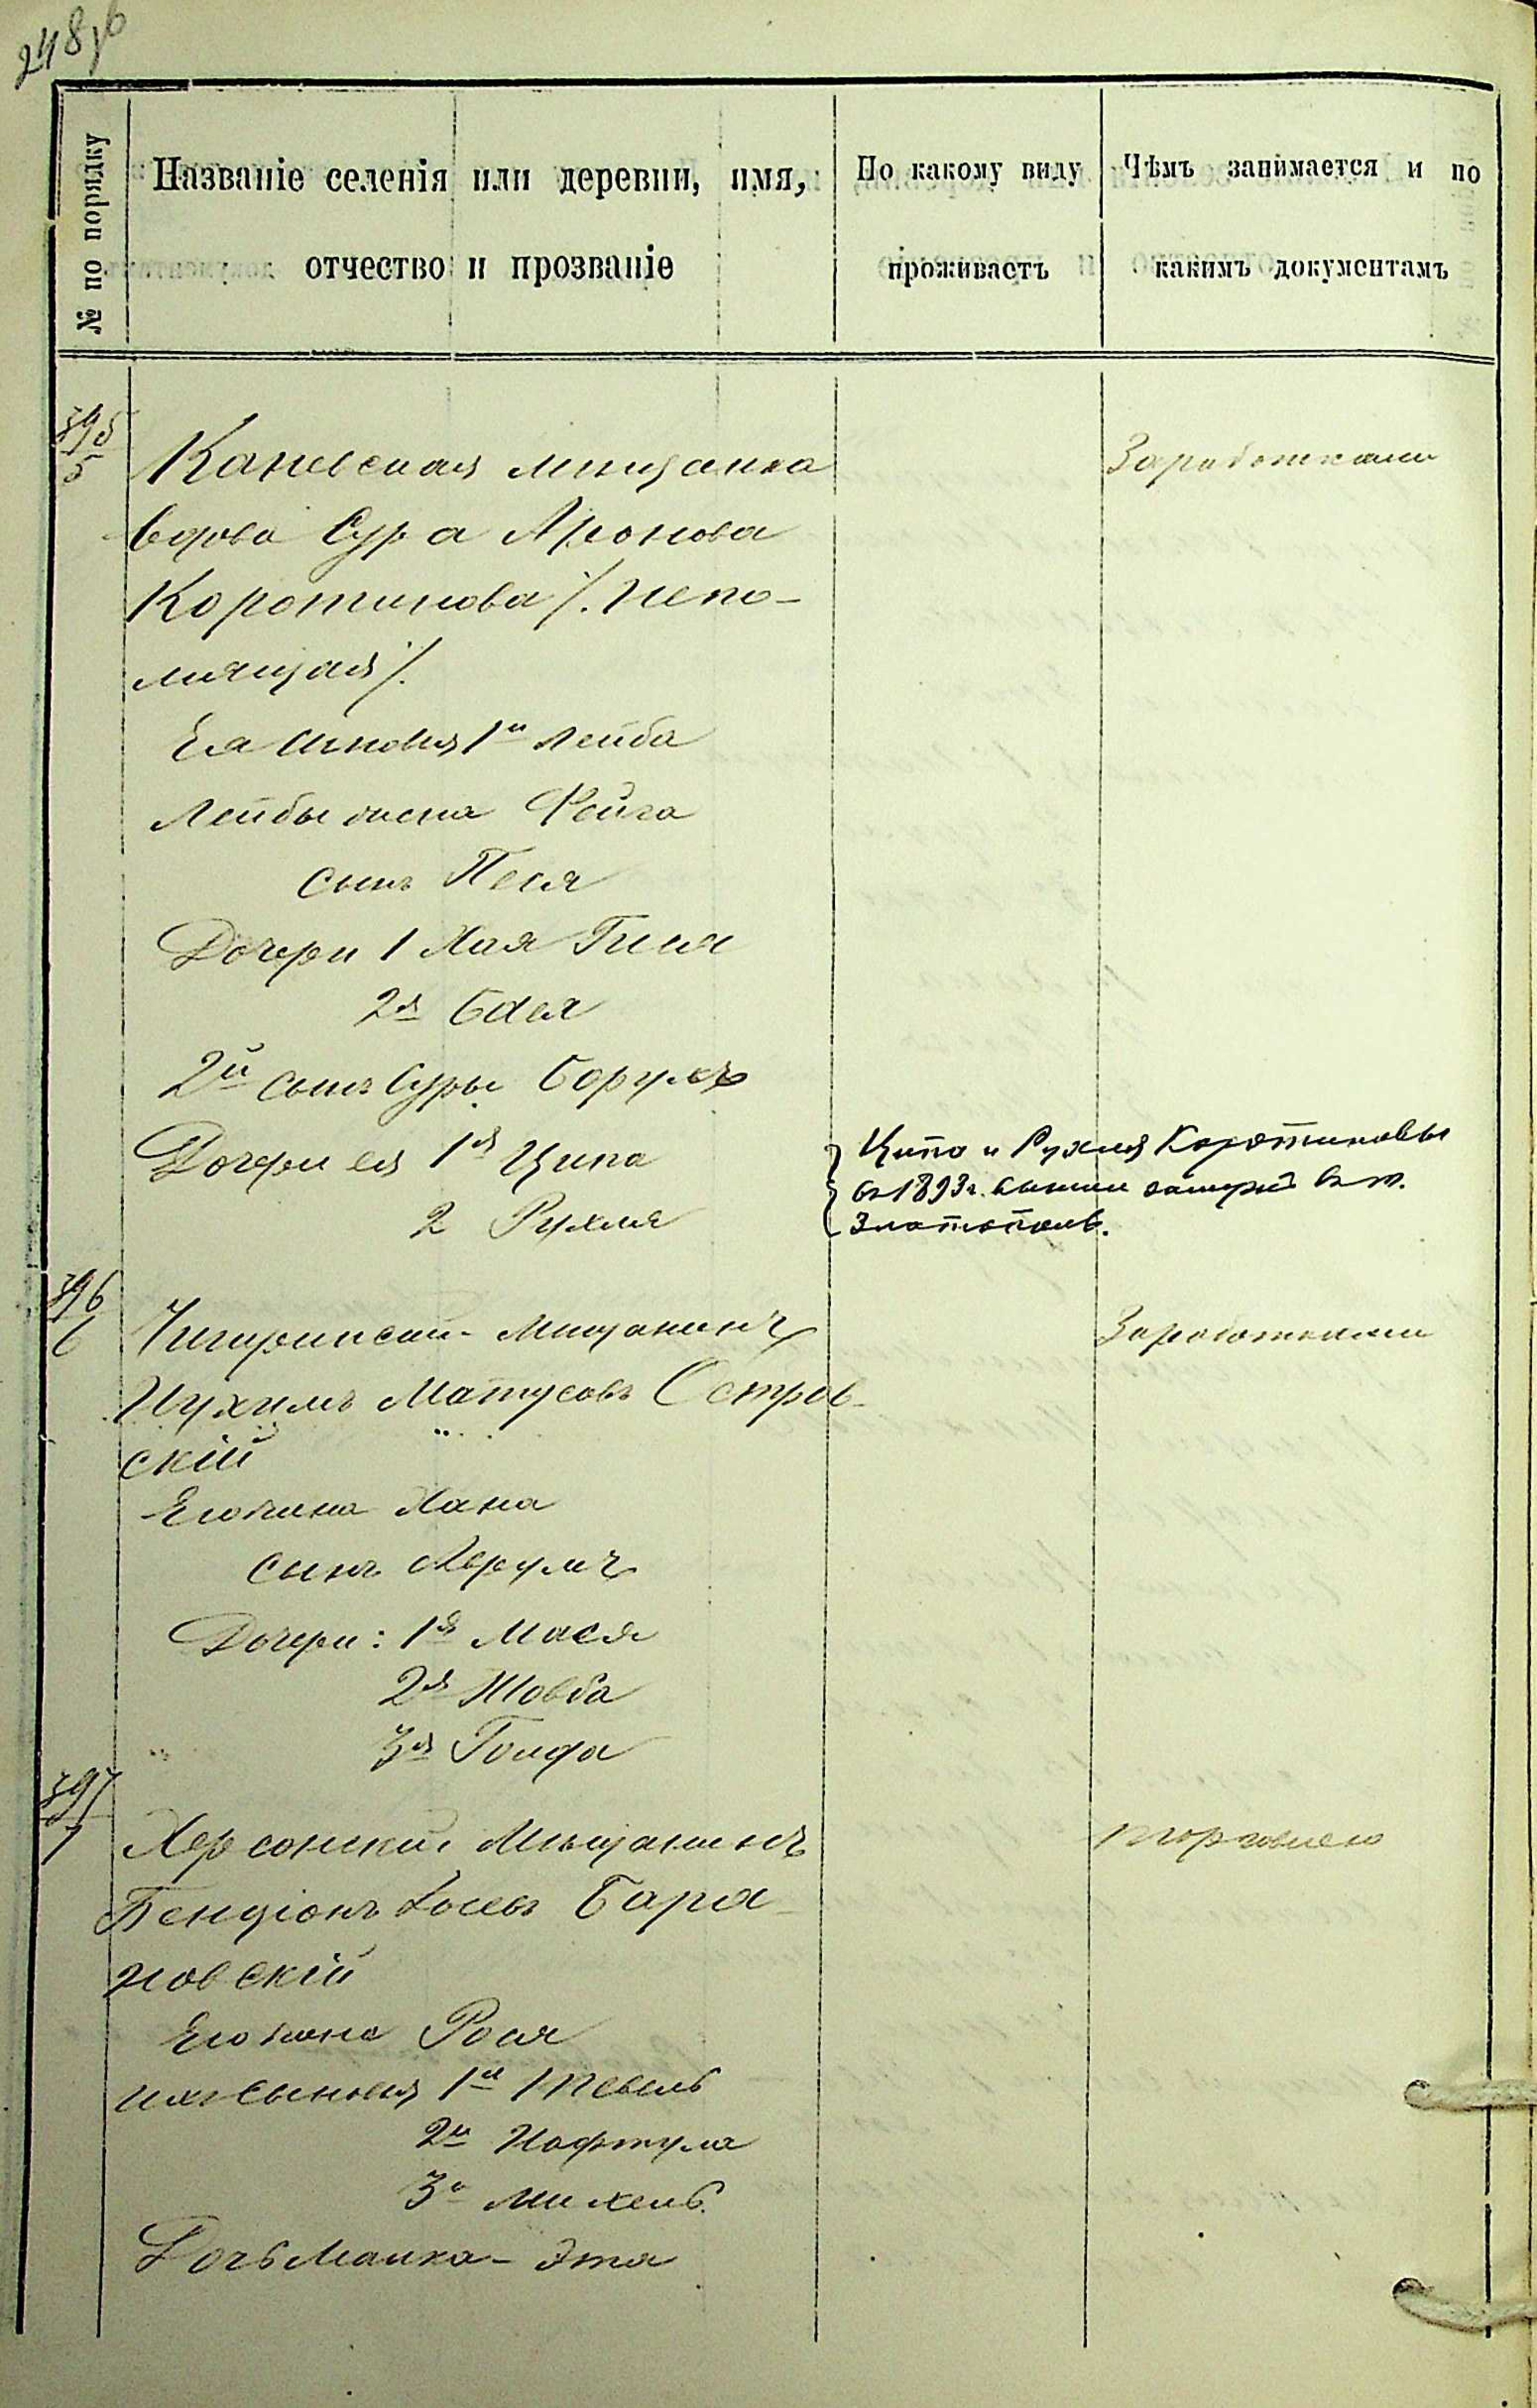 248об
№ по порядку
Названіе селенія или деревни, имя,
отчество и прозваніе
По какому виду
проживаетъ
Чѣмъ занимается и по
какимъ документамъ
395
5
Каневская мищанка
вдова Сура Аронова
Коротинова /. Непо-
мнящая /.
Ея сыновья 1й Лейба
Лейбы жена Фейга
сынъ Песя
Дочери 1 Хая Гися
2я Бася
2й сынъ Суры Борухъ
Дочери ея 1я Ципа
2 Рухля
Заработками
Ципа и Рухля Коротиновы
въ 1893г. вышли замужъ въ м.
Златополь.
396
6
Чигиринскій Мищанинъ
Нухимъ Матусовъ Остров-
скій
Его жена Хана
сынъ Аврумъ
Дочери: 1я Мася
2я Товба
3я Голда
Заработками
397
7
Херсонский Мѣщанинъ
Бенціонъ Іосевъ Бара-
новскій
Его жена Рося
ихъ сыновья 1й Тевель
2й Нафтула
3й Михель
Дочь Малка - Эта
торговлею